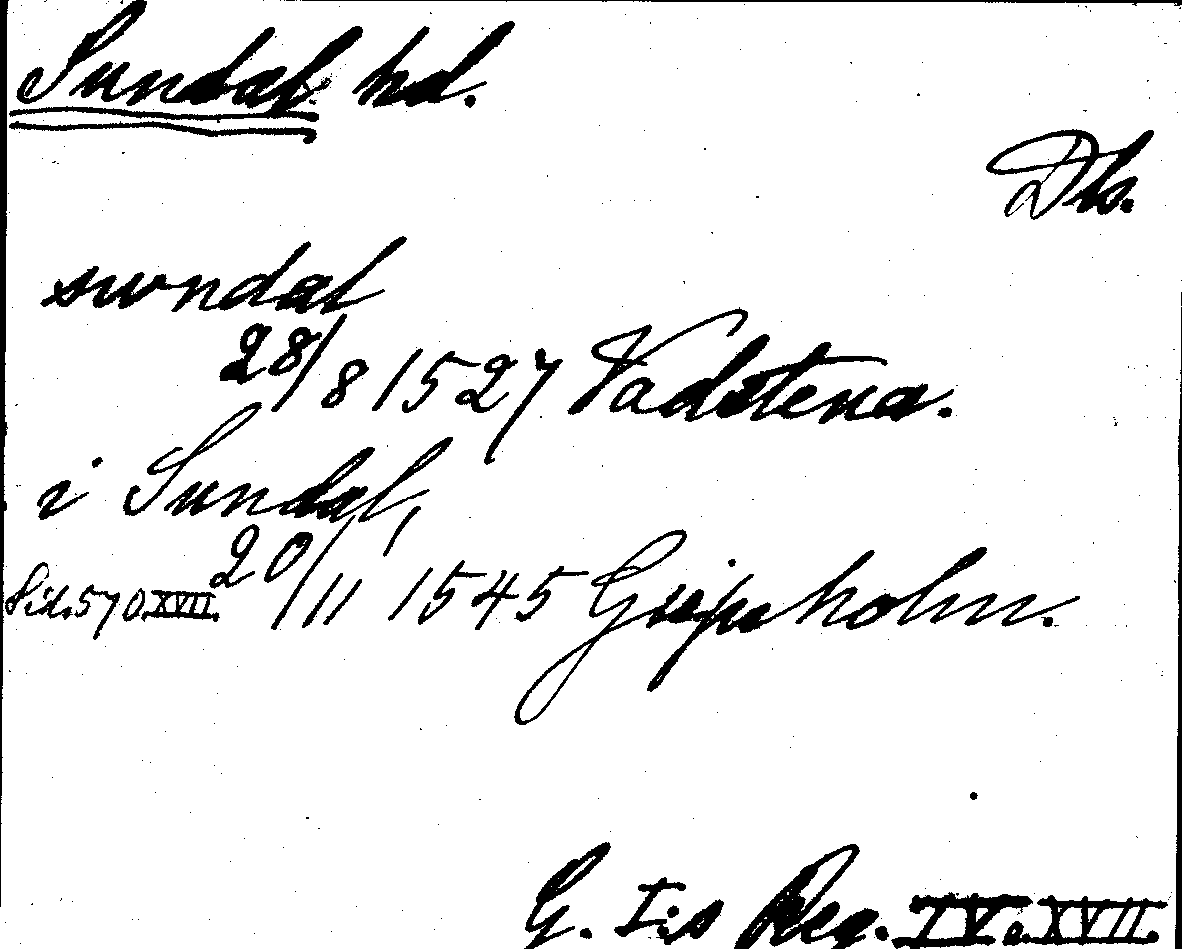 Sundal hd.
Dls.
swndal
28/8 1527 Vadstena.
i Sundal,
Sid. 570 XVII. 20/11 1545 Gripsholm.
G. I:s Reg. IV o. XVII.